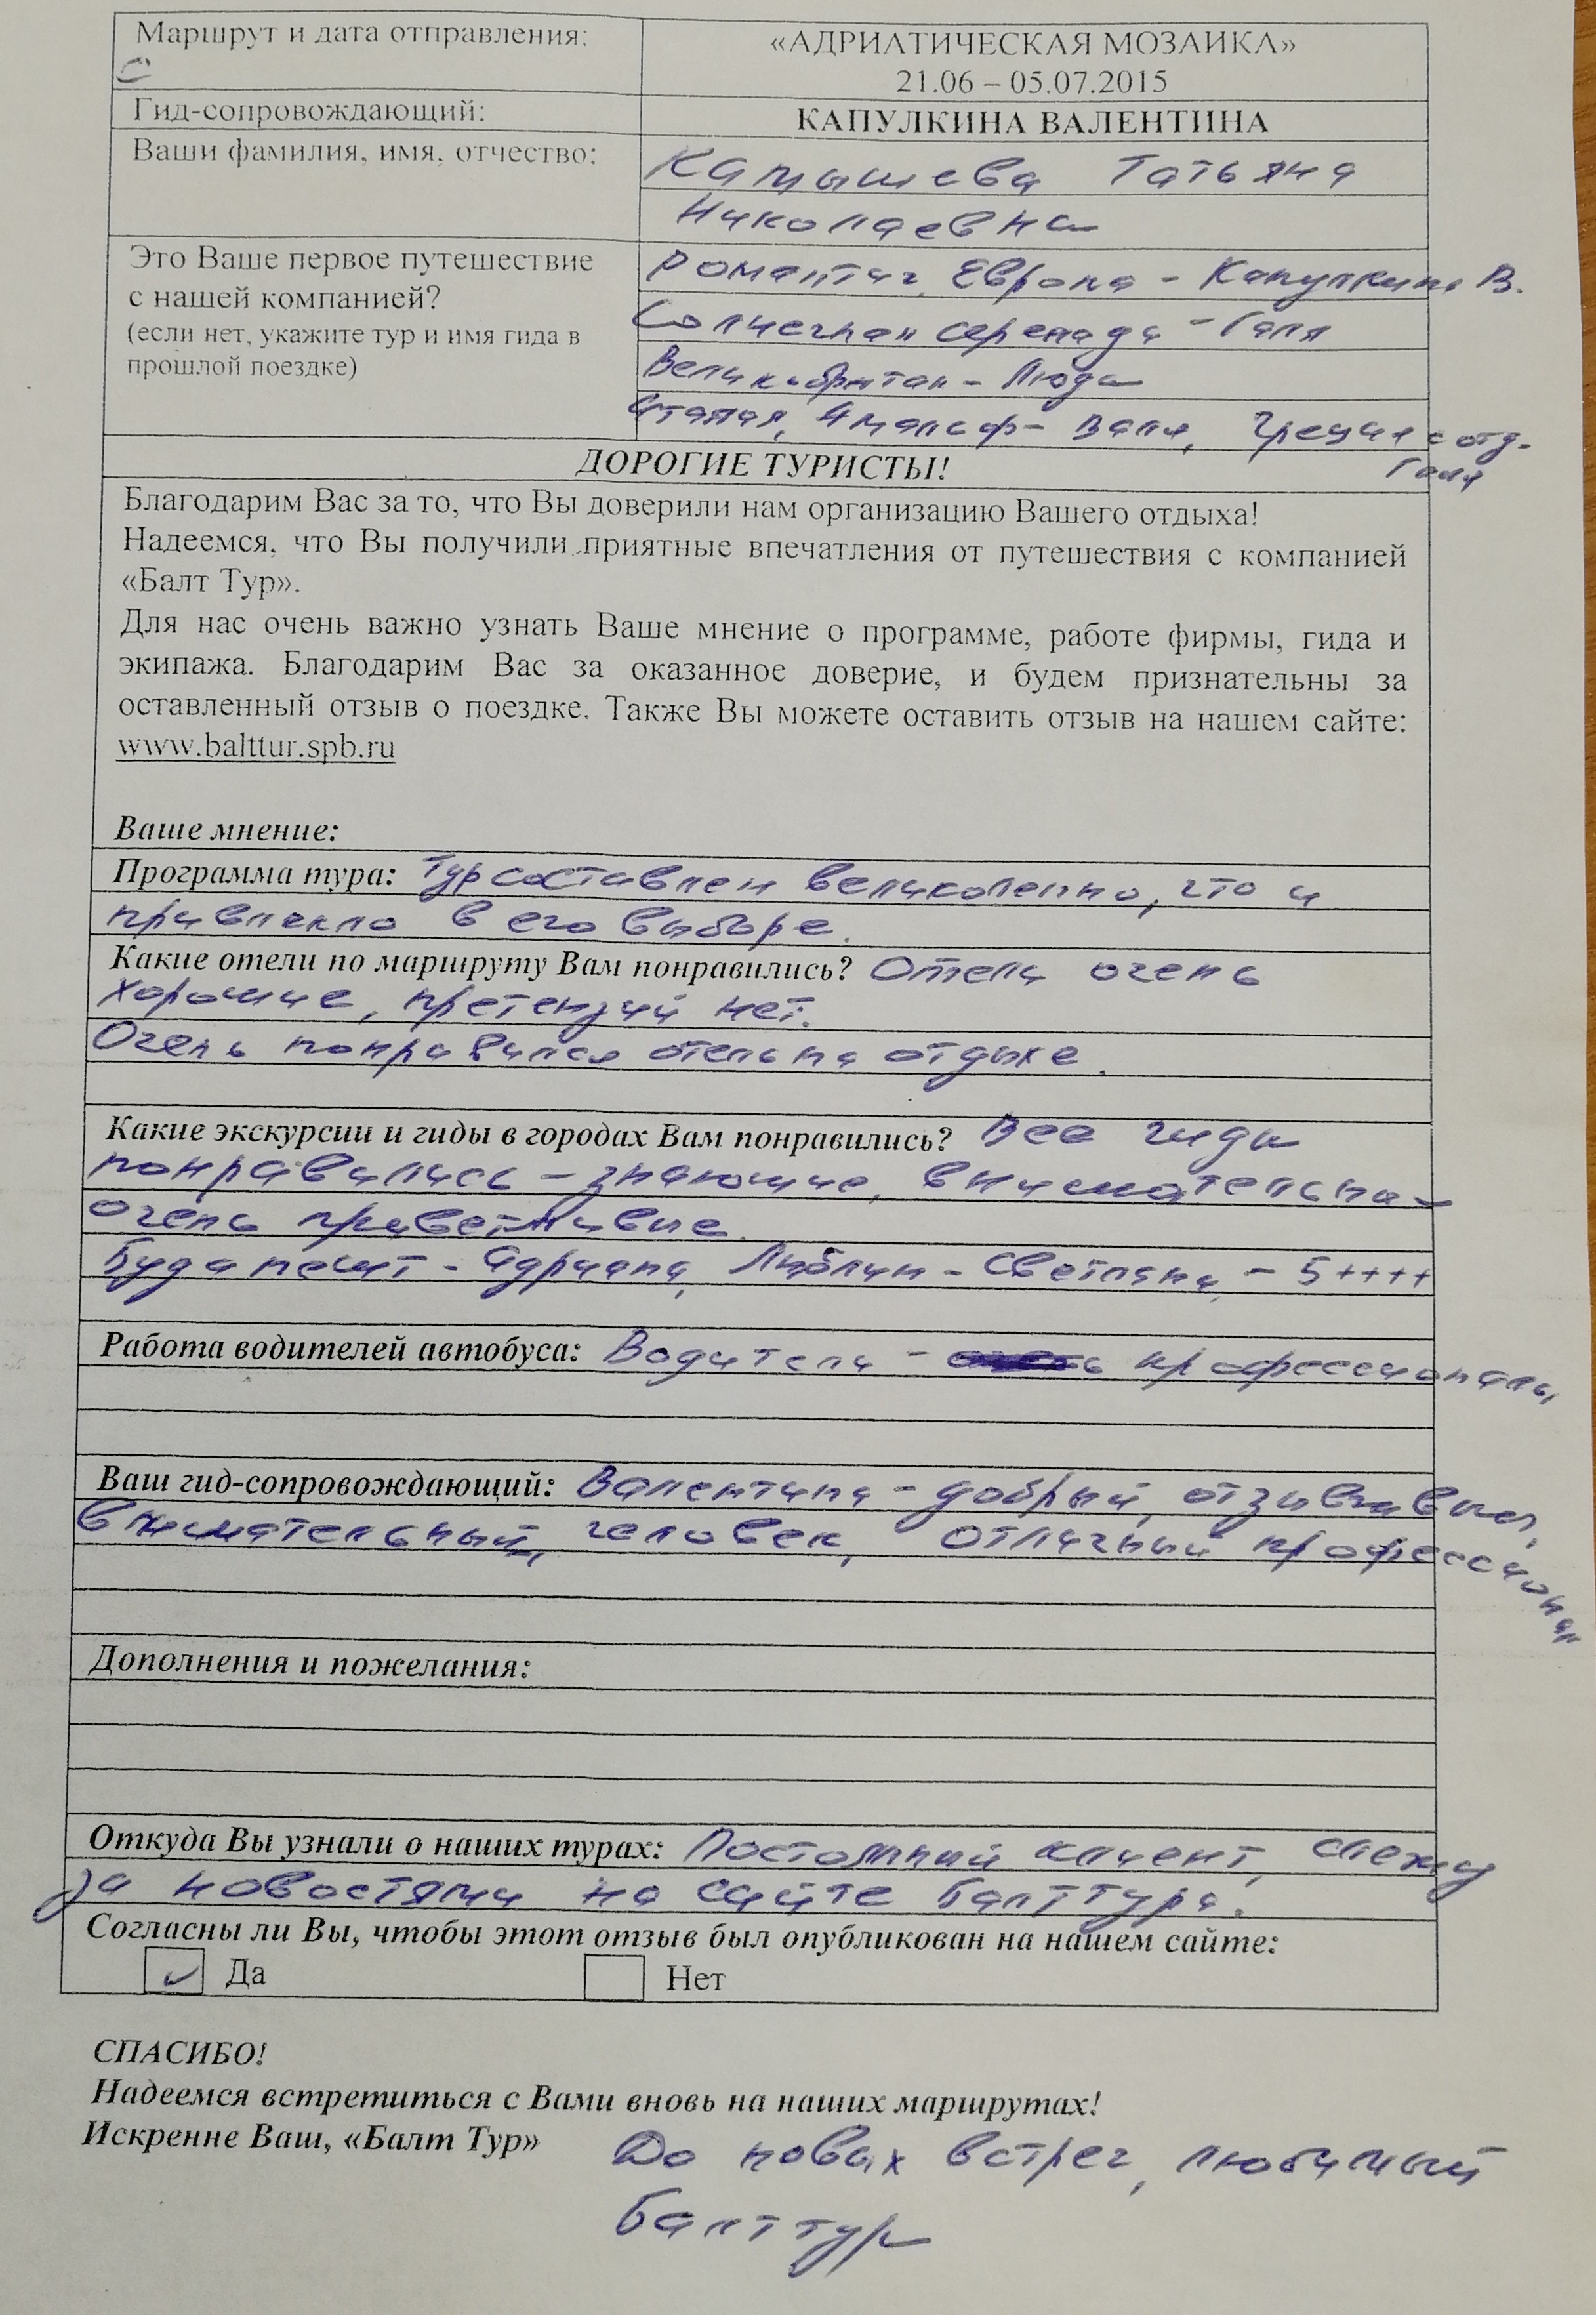 Маршрут и дата отправления:
«АДРИАТИЧЕСКАЯ МОЗАИКА»
21.06 – 05.07.2015
Гид-сопровождающий:
КАПУЛКИНА ВАЛЕНТИНА
Ваши фамилия, имя, отчество:
Камышева Татьяна
Николаевна
Это Ваше первое путешествие
с нашей компанией?
(если нет, укажите тур и имя гида в
прошлой поездке)
Романтич. Европа - Капулкина В.
Солнечная серенада - Галя
Великобритан - Люда
Италия, Амальф - Валя, Греция с отд.
Галя
ДОРОГИЕ ТУРИСТЫ!
Благодарим Вас за то, что Вы доверили нам организацию Вашего отдыха!
Надеемся, что Вы получили приятные впечатления от путешествия с компанией
«Балт Тур».
Для нас очень важно узнать Ваше мнение о программе, работе фирмы, гида и
экипажа. Благодарим Вас за оказанное доверие, и будем признательны за
оставленный отзыв о поездке. Также Вы можете оставить отзыв на нашем сайте:
www.balttur.spb.ru
Ваше мнение:
Программа тура: Тур составлен великолепно, что и
привлекло в его выборе.
Какие отели по маршруту Вам понравились? Отели очень
хорошие, претензий нет.
Очень понравился отель на отдыхе.
Какие экскурсии и гиды в городах Вам понравились? Все гиды
понравились - знающие, внимательные
очень приветливые.
Будапешт - Адриана, Люблин - Светлана, - 5++++
Работа водителей автобуса: Водители - профессионалы
Ваш гид-сопровождающий: Валентина - добрый, отзывчивый,
внимательный, человек, отличный профессионал
Дополнения и пожелания:
Откуда Вы узнали о наших турах: Постоянный клиент, слежу
за новостями на сайте Балттура.
Согласны ли Вы, чтобы этот отзыв был опубликован на нашем сайте:
✓ Да Нет
СПАСИБО!
Надеемся встретиться с Вами вновь на наших маршрутах!
Искренне Ваш, «Балт Тур»
До новых встреч, любимый
Балттур